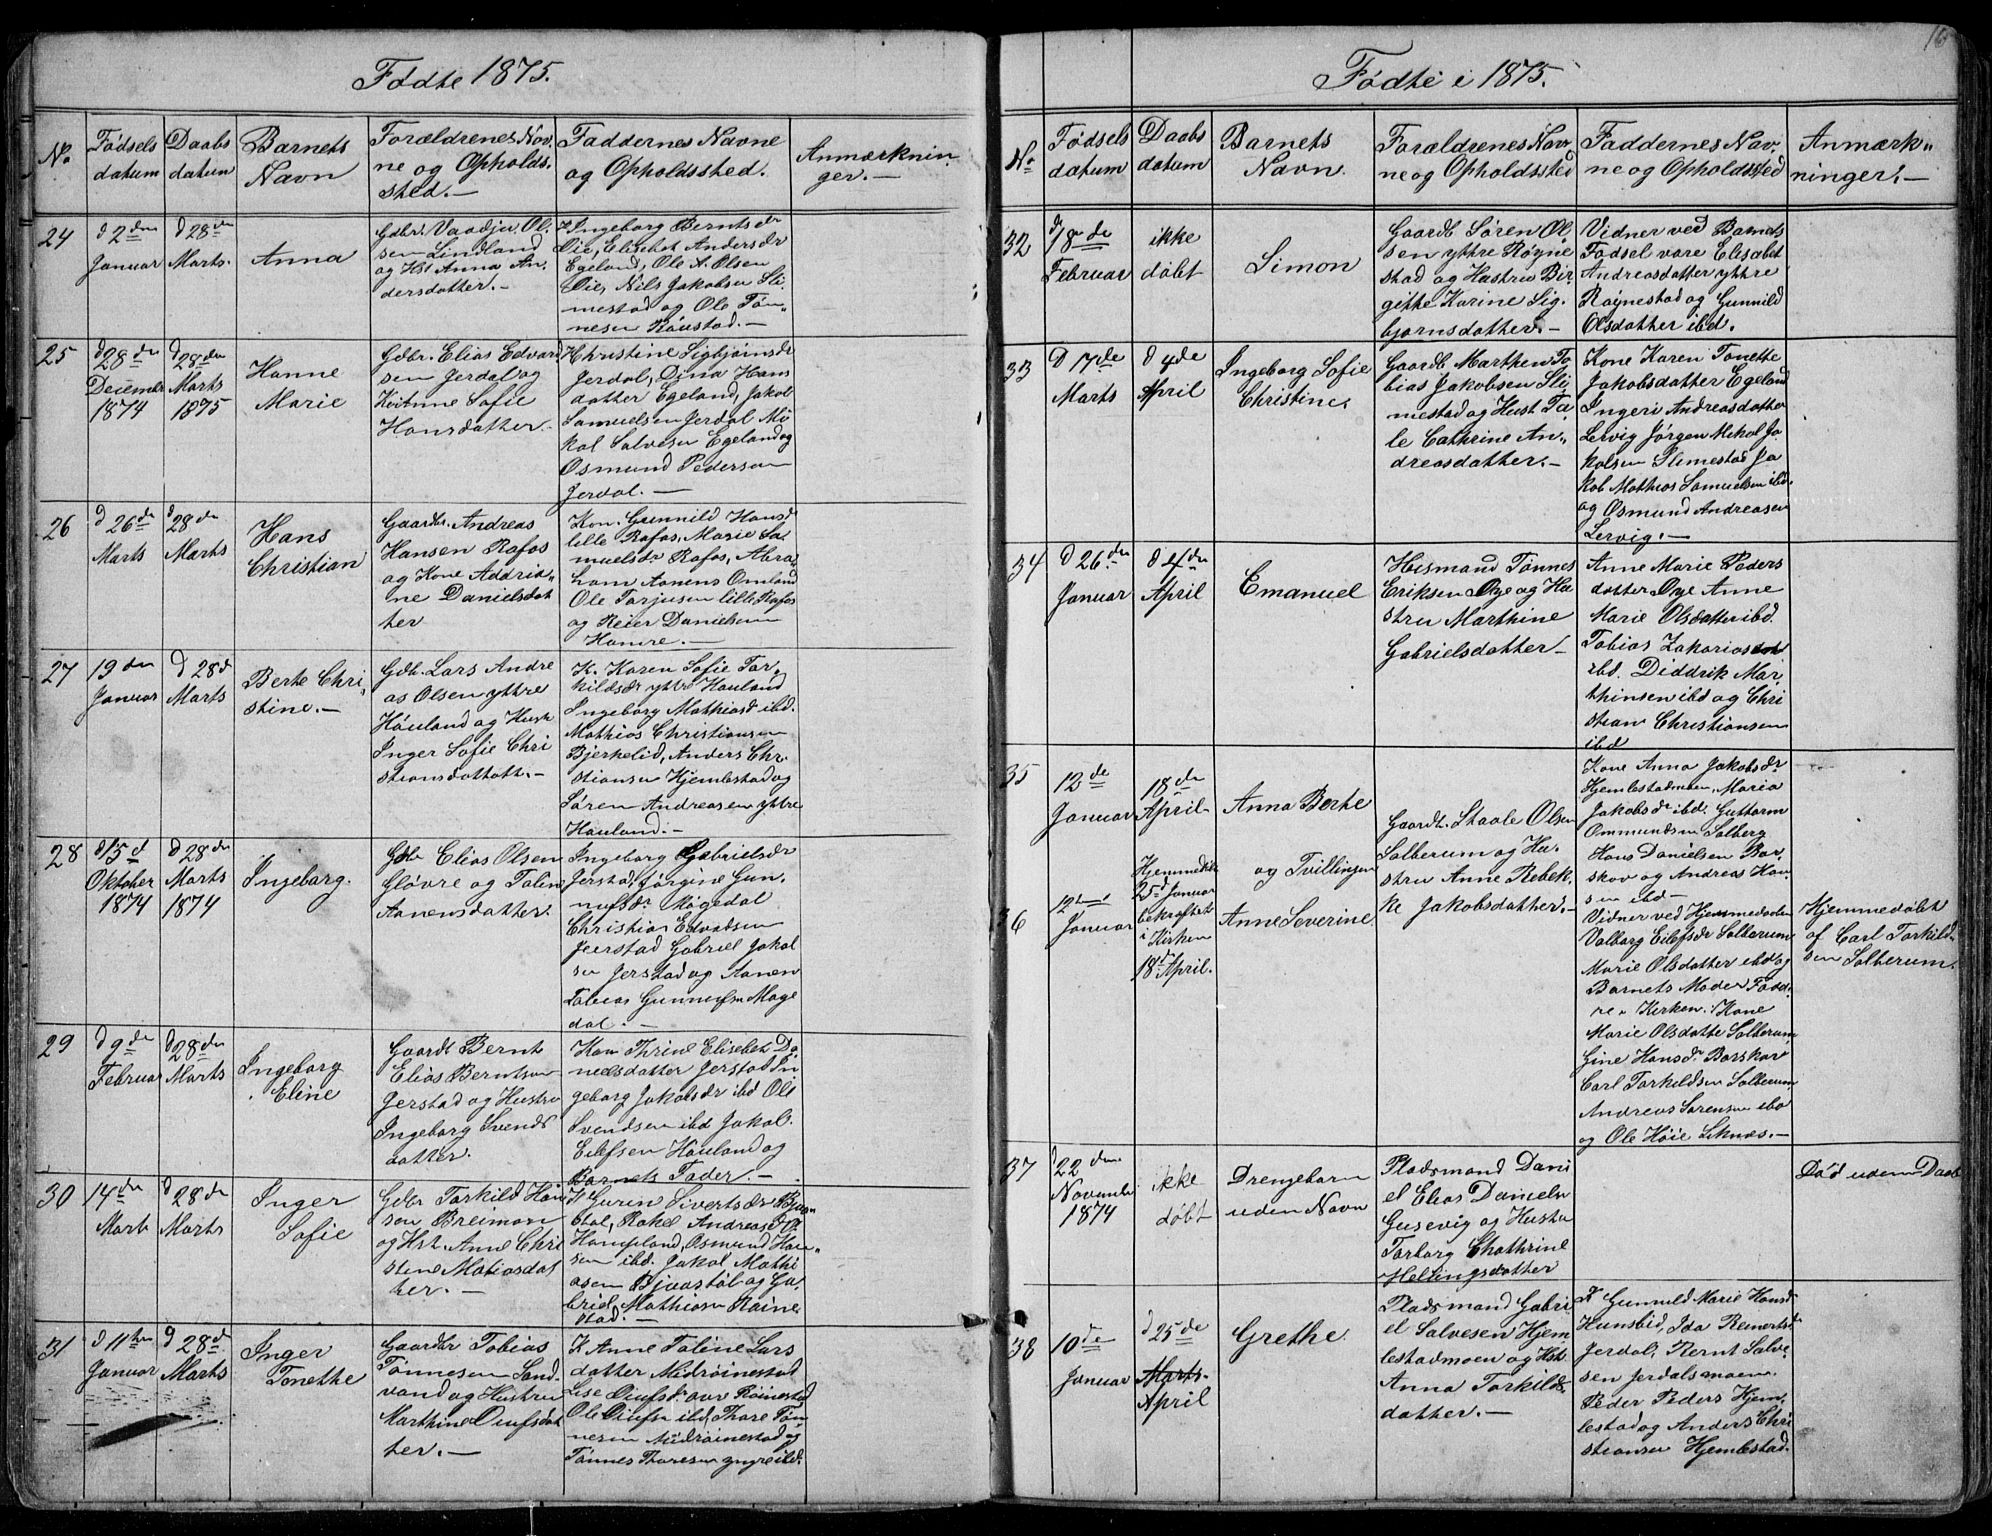 Fødte 1875.
No
Fødsels
datum
Daabs
datum
Barnets
Navn
Forældrenes Nav,
ne og Opholds,
sted.—
Faddernes Navne
og Opholdssted.
Anmærknin
ger.—
24
d 2den
Januar
d 28de
Marts.
Anna
Gdbr. Vaadju Ol,
sen Lindland
og Hst Anna An,
dersdatter.—
K Ingeborg Berntsdr
Øie, Elisabet Andersdr
Egeland, Ole A. Olsen
Øie, Nils Jakobsen Sli,
mestad og Ole Tøn„
nesen Røiestad.—
25
d 28de
Decembr
1874
d 28de
Marts
1875
Hanne
Marie
Gdbr. Elias Edvard
sen Jerdal og
Anne Sofie
Hansdatter.
Christine Sigbjørnsdr
Jerdal, Dina Hans
datter Egeland, Jakob
Samuelsen Jerdal Mi
kal Salvesen Egeland og
Osmund Pedersen
Jerdal.—
26
d 26de
Marts
d 28de
Marts
Hans
Christian
Gaardbr. Andreas
Hansen Rafos
og Kone Addria„
ne Danielsdat
ter
Kon. Gunnild Hansdr
lille Rafos, Marie Sa
muelsdr Rafos, Abra,
ham Aanens Omland
Ole Tarjusen lille Rafos
og Reier Danielsen
Hamre.—
27
19den
Januar
d 28d
Marts
Berte Chri,
stine.—
Gdb. Lars Andre
as Olsen yttre
Houland og Hust
Inger Sofie Chri
stiansdatter.—
K. Karen Sofie Tor,
kildsdr yttre Houland
Ingeborg Mathiasd ibd.
Mathias Christiansen
Bjerkelid, Anders Chr.
stiansen Hjemlestad og
Søren Andreasen yttre
Houland.—
28
d 15d
Oktober
1874
d 28de
Marts
1874
Ingeborg.
Gdb Elias Olsen
Gløvre og Taline
Aanensdatter.
Ingeborg Gabrielsdr
Jerstad, Jørgine Gun,
nufsdr Møgedal
Christian Edvardsen
Jerstad Gabriel Jakob
sen Jerstad og Aanen
Tobias Gunnufsen Møge
dal.—
29
d 9de
Februar
d 28de
Marts
Ingeborg
Eline
Gaardb Bernt
Elias Berntsen
Jerstad og Hustru
Ingeborg Svends
datter.
Kon Thrine Elisebet Da
nielsdatter Jerstad In
geborg Jakobsdr ibd Ole
Svendsen ibd Jakob.
Eilefsen Houland og
Barnets Fader.—
30
14de
Marts
d 28de
Marts
Inger
Sofie
Gdbr Torkild Han
sen Breimon
og Hst. Anne Chri
stine Matiasdat
ter.—
K Gurin Sivertsdr Bjaa
støl, Rakel Andreasdr
Haugland, Osmund Han„
sen ibd. Jakob Mathi
asen Bjaastøl og Ga
briel Mathiasen Røine
stad.—
31
d 11te
Januar
d 28d
Marts
Inger
Tonette
Gaardbr Tobias
Tønnesen Sand,
vand og Hustru
Marthine Oiufsdat
ter.—
K Anne Taline Lars
datter Midrøinestad
Lise Oiufsdr øvr Røinestad
Ole Oiufsen ibd, Thore Tøn,
nesen Midrøinestad og
Tønnes Thoresen yngre ibd.
16
Fødte i 1875.
No
Fødsels
datum
Daabs
datum
Barnets
Navn.
Forældrenes Nav,
ne og Opholdssted
Faddernes Nav,
ne og Opholdssted
Anmærk„
ninger.—
32
d 18de
Februar
ikke
døbt
Simon
Gaardb Søren Ol
sen yttre Røyne
stad og Hustru Bir
gitte Karine Sig,
bjørnsdatter.—
Vidner ved Barnets
Fødsel vare Elisabet
Andreasdatter yttre
Røynestad og Gunnild
Olsdatter ibd.
33
d 17de
Marts
d 4de
April
Ingeborg Sofie
Christine.
Gaardb Marthen To
bias Jakobsen Sli,
mestad og Hust Ta,
le Cathrine An„
dreasdatter.—
Kone Karen Tonette
Jakobsdatter Egeland
Ingeri Andreasdatter
Lervig Jørgen Mikal Ja
kobsen Slimestad Ja
kob Mathias Samuelsen ibd
og Osmund Andreasen
Lervig.—
34
d 26de
Januar
d 4de
April
Emanuel
Husmand Tønnes
Eriksen Øye og Hu
stru Marthine
Gabrielsdatter—
Anne Marie Peders
datter Øye Anne
Marie Olsdatter ibd.
Tobias Zakarias
ibd. Diddrik Mar,
thinsen ibd og Chri
stian Christiansen
ibd
35
12de
Januar
18de
April
Anna Berte
Gaardb. Staale Olsen
Salberum og Hu,
stru Anne Rebek,
ke Jakobsdatter.—
Kone Anna Jakobsdr
Hjemlestadmoen, Maria
Jakobsdr ibd. Guttorm
Ommundsen Solberg
Hans Danielsen Bar,
skov og Andreas Han
sen ibd—
36
12te
Januar
Hjemmedøbt
25d Januar
bekræftet
i Kirken
18d April.
og Tvillingen
Anne Severine
Vidner ved Hjemmedaaben
Valborg Eilefsdr Salberum
Marie Olsdatter ibd og
Barnets Moder Fadd,
re i Kirken: Kone
Marie Olsdatte Salberum,
Gine Hansdr Barskov
Carl Torkildsen Salberum
Andreas Sørensen ibd
og Ole Høie Liknæs.—
Hjemmedøbt
af Carl Torkild,
sen Salberum.
37
d 22den
Novembr
1874
ikke
døbt
Drengebarn
uden Navn
Pladsmand Dani
el Elias Daniels
Gusevig og Hustru
Torborg Chathrine
Hellingsdatter
Død uden Daab
38
10de
Januar
d 25de
Marts.
April
Grethe.
Pladsmand Gabri
el Salvesen Hjem
lestadmoen og Hst.
Anna Torkilds,
datter.—
K Gunnild Marie Hansd
Hunsbid, Ida Reinertsd
Jerdal, Bernt Salve,
sen Jerdalsmoen.
Peder Peders Hjem,
lestad og Anders Chri
stiansen Hjemlestad.